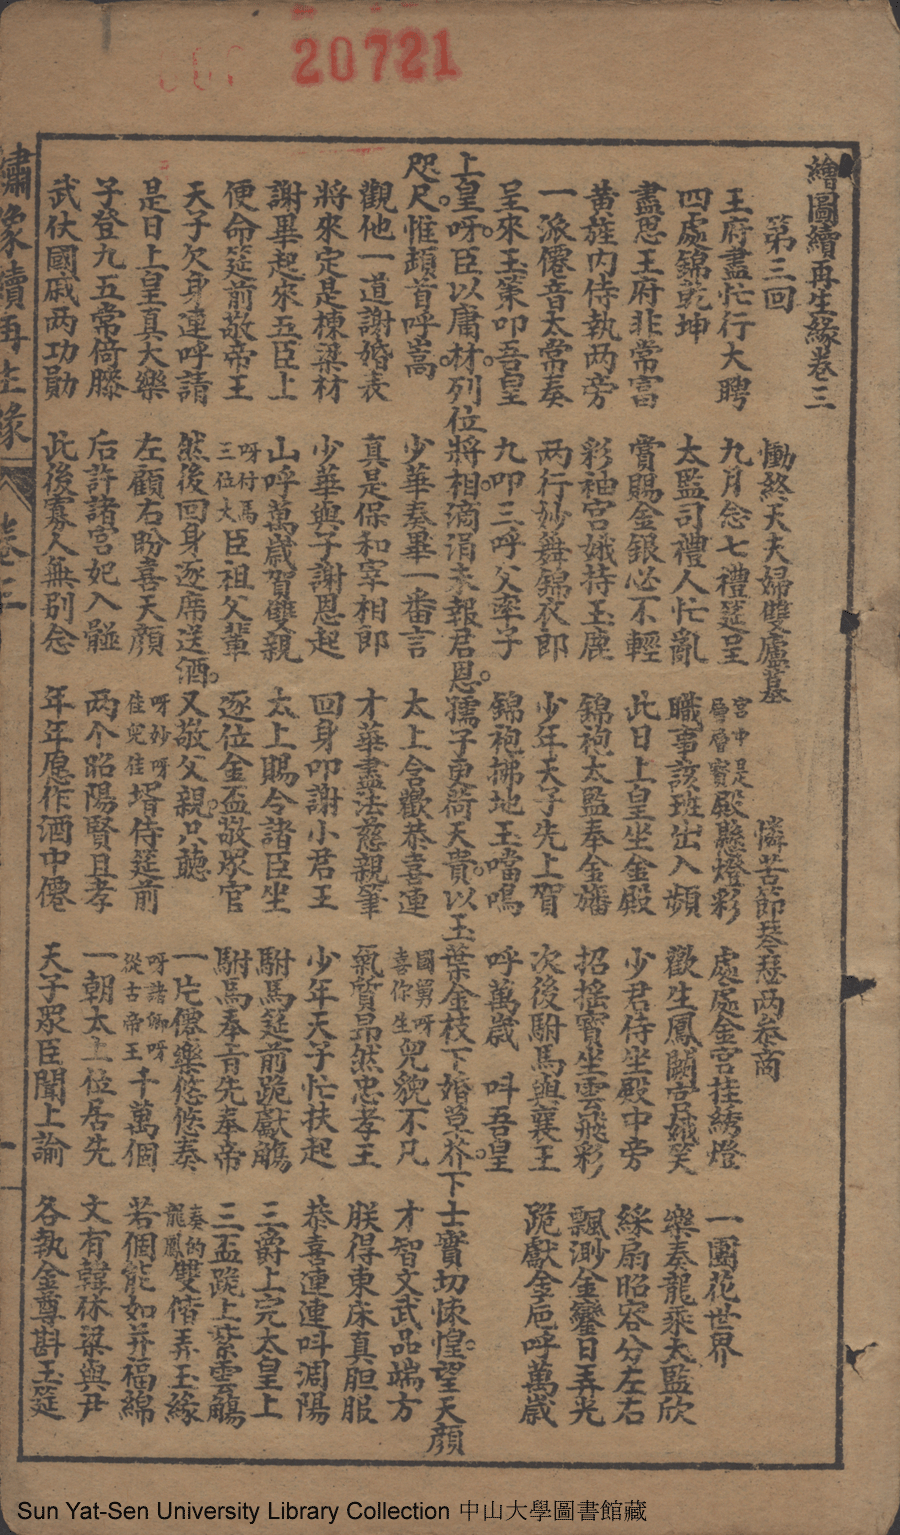 20721
繪圖續再生緣卷三
第三回 慟終天夫婦雙廬墓 憐苦節琴瑟两叅商
王府盡忙行大聘 九月念七禮筵呈 宮中是層層寶殿懸燈彩 處處金宮挂綉燈 一團花世界
四處錦乾坤 太監司禮人忙亂 職事該班出入頻 歡生鳳闕宫娥笑 樂奏龍乘太監欣
盡思王府非常富 賞賜金銀必不輕 此日上皇坐金殿 少君侍坐殿中旁 綵扇昭容分左右
黄旌内侍執两旁 彩袖宮娥持玉麈 錦袍太監奉金旛 招摇寶坐雲飛彩 飄渺金鑾日弄光
一派僊音太常奏 两行妙舞錦衣郎 少年天子先上賀 次後駙馬與襄王 跪獻金巵呼萬歲
呈來玉策叩吾皇 九叩三呼父率子 錦袍拂地玉噹鳴 呼萬歲 呌吾皇
上皇呀。臣以庸材。列位將相。滴涓未報君恩。孺子更荷天貴。以玉葉金枝下婚草芥。下士實切悚惶。望天顔
咫尺。惟頓首呼嵩 少華奏畢一番言 太上含歡恭喜連 國舅呀喜你生兒貌不凡 才智文武品端方
觀他一道謝婚表 真是保和宰相郎 才華盡法慈親筆 氣質昻然忠孝王 朕得東床真胆服
將來定是棟梁材 少華與子謝恩起 回身叩謝小君王 少年天子忙扶起 恭喜連連呌淍陽
謝畢起來五臣上 山呼萬歲賀雙親 太上賜令諸臣坐 駙馬筵前跪獻觴 三爵上完太皇上
便命筵前敬帝王 呀付馬三位大臣祖父輩 逐位金盃敬衆官 駙馬奉旨先奉帝 三盃跪上紫雲觴
天子欠身連呼請 然後回身逐席送酒。又敬父親。只聽 一片僊樂悠悠奏 奏的龍鳳雙偕弄玉緣
是日上皇真大樂 左顧右盼喜天顔 呀妙呀佳兒佳壻侍筵前 呀諸卿呀從古帝王千萬個 若個能如并福綿
子登九五常倚膝 后許諸宮妃入骽 两个昭陽賢且孝 一朝太上位居先 文有韓休梁與尹
武仗國戚两功勛 此後寡人無别念 年年愿作酒中僊 天子眾臣聞上諭 各執金尊斟玉筵
繡像續再生緣 卷三 一
Sun Yat-Sen University Library Collection 中山大學圖書館藏